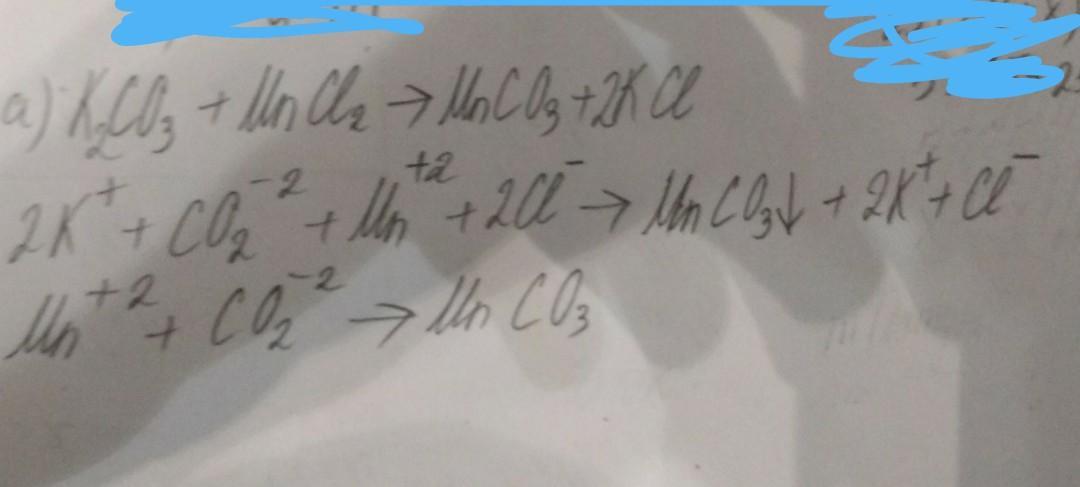 а) K₂CO₃ + MnCl₂ → MnCO₃ + 2KCl
2K⁺ + CO₂⁻² + Mn⁺² + 2Cl⁻ → MnCO₃↓ + 2K⁺ + Cl⁻
Mn⁺² + CO₂⁻² → MnCO₃